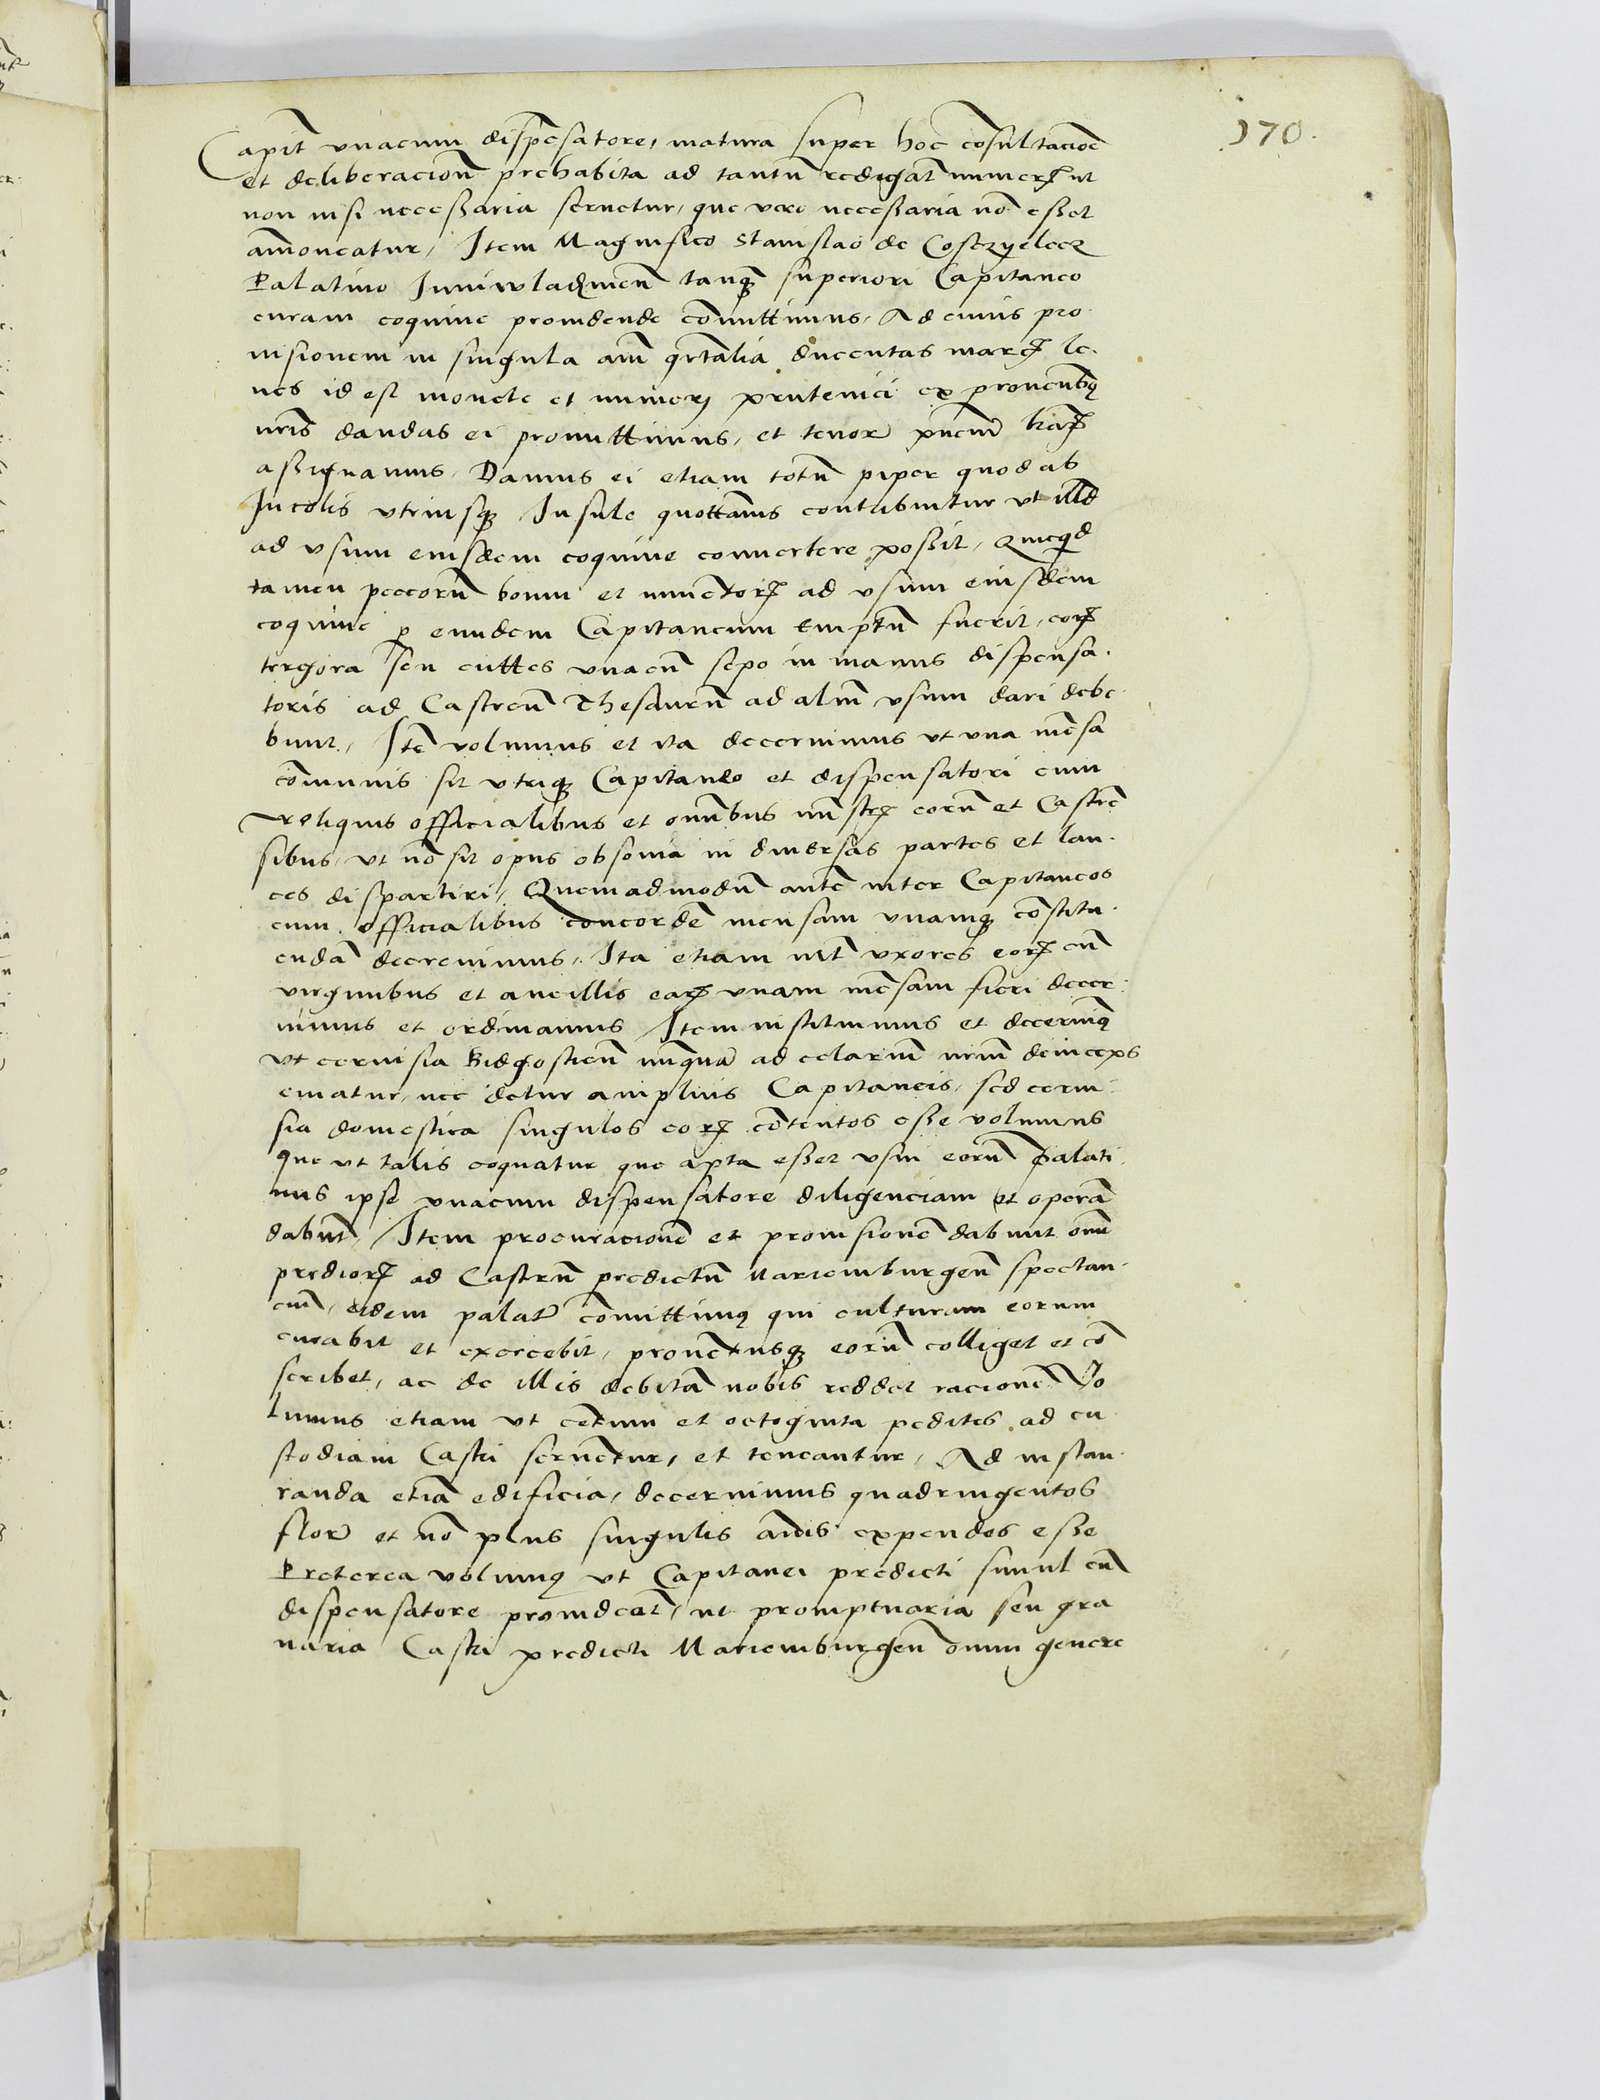 170.
Capit vnacum dispēsatore, matura super hoc cōsultacioē
et deliberacioñ prehabita ad tantū redigat numerū ut
non nisi necessaria seruetur, que vero necessaria nō esset
amōueatur, Item Magnifico Stanislao de Coszyelecz
Palatino Juniwladzmeñ tanq̃ superiori Capitaneo
curam coquine prouidende cōmittimus, Ad cuius pro
uisionem in singula añ qrtalia ducentas marcꝝ le-
ues id est monete et numerj prutenici ex prouentibꝫ
nr̃is dandas ei promittimus, et tenore pñcium
assignamus, Damus ei etiam totū piper quod ab
Incolis vtriusqꝫ Insule quottānis contribuitur vt illd
ad vsum eiusdem coquine conuertere possit, Quicqd
tamen pecorū boum et iumētorꝝ ad vsum eiusdem
coquine ꝑ eundem Capitaneum Emptū fuerit, eorꝝ
tergora seu cuttes vnacū sepo in manus dispensa-
toris ad Castreñ Thesaurū ad aliū vsum dari debe-
bunt, Itē volumus et ita decernimus vt vna mēsa
cōmunis sit vtriqꝫ Capitaneo et dispensatori cum
reliquis officialibus et omībus mīstrꝭ eorū et Castrē
sibus, vt nō sit opus obsonia in diuersas partes et lan-
ces dispartiri, Quemadmodū autē inter Capitaneos
cum officialibus concordē mensam vnamqꝫ cōstitu-
endā decreuimus, Ita etiam int̄ vxores eorꝝ cū
virginibus et ancillis earꝝ vnam mēsam fieri decer-
nimus et ordinamus Item instituimus et decernimꝰ
vt ceruisia Bidgostieñ nunquā ad celariū nr̄m deinceps
ematur, nec detur amplius Capitaneis, sed cerui-
sia domestica singulos eorꝝ cōtentos esse volumus
que vt talis coquatur que apta esset vsui eorū Palati-
nus ipse vnacum dispensatore diligenciam et operā
dabūt, Item procuracionē et prouisionē dabunt om̄
prediorꝝ ad Castrū predictū Mariemburgeñ spectan-
ciū, eidem palat̃ cōmittimꝰ qui culturam eorum
curabit et exercebit, prouētusqꝫ eorū colliget et cō
scribet, ac de illis debitā nobis reddet racionē Vo
lumus etiam vt cētum et octoginta pedites ad cu
stodiam Castri seruētur, et teneantur, Ad instau-
randa etiā edificia, decernimus quadringentos
flor̄ et nō plus singulis añis expendos esse
Preterea volumꝰ vt Capitanei predicti simul cū
dispensatore prouideāt, ut promptuaria seu gra
naria Castri predicti Mariemburgeñ omni genere